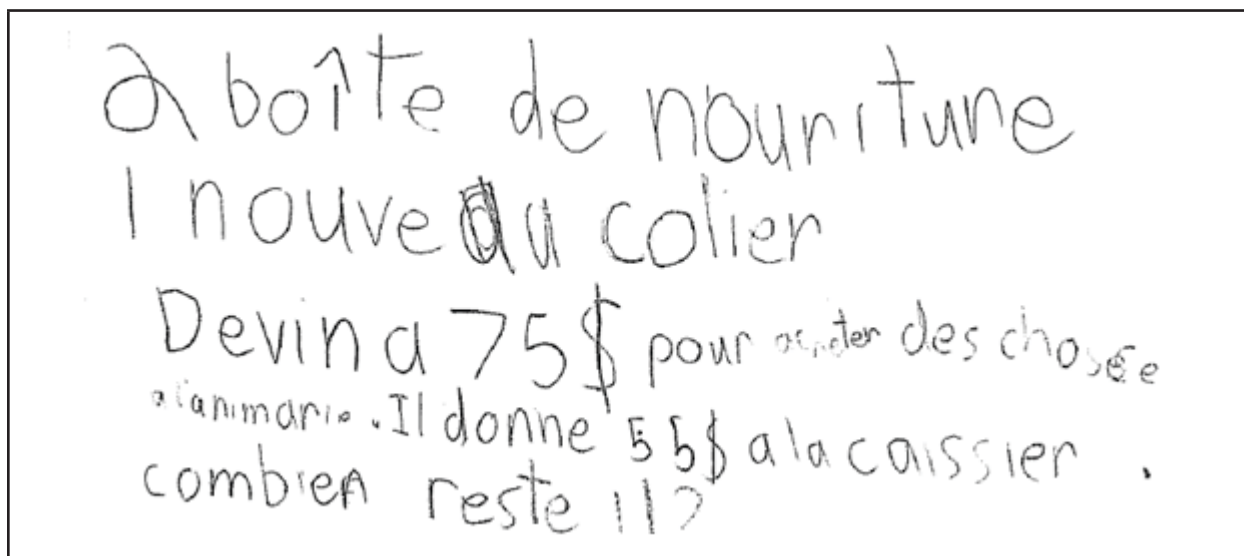 2 boîte de nouriture
1 nouveau colier
Devin a 75$ pour acheter des chose
a l'animarie. Il donne 55$ a la caissier.
combien reste il?